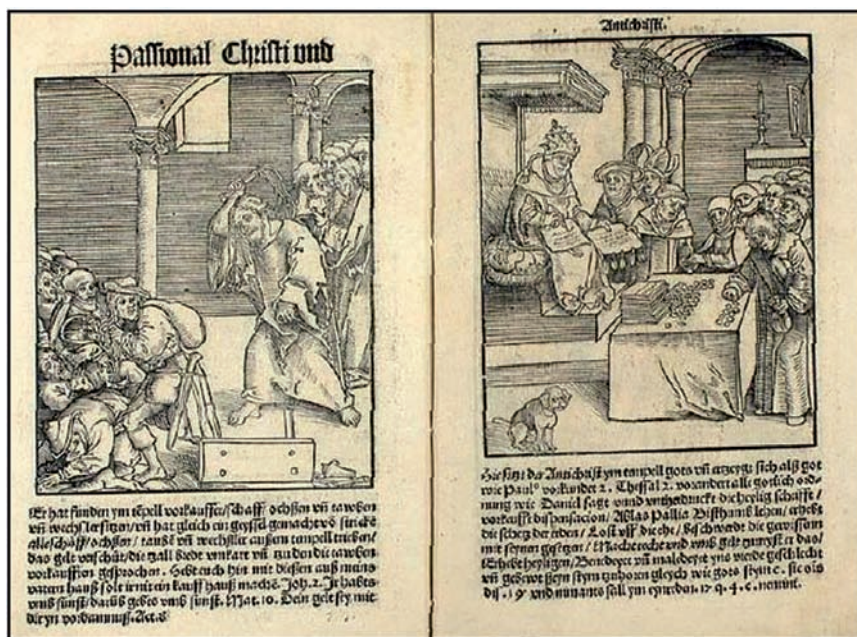 Passional Christi und
Er hat funden ym tēpell vorkauffer/schaff/ ochßen vñ tawben
vñ wechsler sitzen/ vñ hat gleich ein geyssel gemacht vō stricke
alle schaff/ ochßen/ taubē vñ wechßler außem tempell trieben/
das gelt verschüt/ die zall bredt umkart vñ zu den die tawben
vorkaufften gesprochen. Hebt euch hin mit dießen auß meins
vatern hauß solt ir nit ein kauff hauß machē. Joh. 2. Ir habts
umb sunst/ darūb gebts umb sunst. Mat. 10. Dein gelt sey mit
dir yn vordamnuß. Act. 8
Antichristi.
Hie sitzt der Antichrist ym tempell gots vñ ertzeygt sich alß got
wie Paulꝰ vorkundet 2. Thessal 2. vorandert alle gotlich ord-
nung wie Daniel sagt und untherdruckt die heylig schrifft/
vorkeufft dispensacion/ Ablas Pallia Bisthumb lehen/ erhebt
die schetz der erden/ Lost uff die ehe/ Beschwerdt die gewissen
mit seynen gesetzen/ Macht recht und umb gelt zureyst er das/
Erhebt heyligen/ Benedeyet vñ maledeyet yns vierde geschlecht
vñ gebewt seyn stym zuhoren gleych wie gots stym c. sic ois
dis. 19 und niemants sall ym eynreden. 17. q. 4. c. nemini.